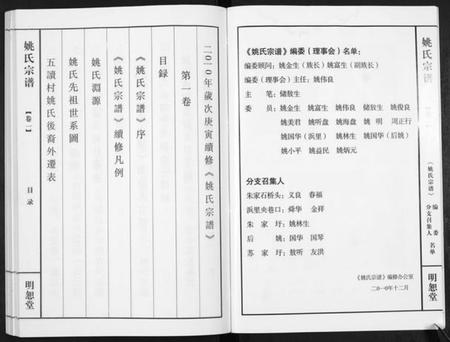 《姚氏宗谱》编委（理事会）名单：
编委顾问：姚金生（族长）姚富生（副族长）
编委（理事会）主任：姚伟良
主 笔：储放生
委 员：姚金生 姚富生 姚伟良 储放生 姚俊良
姚美君 姚听盘 姚海盘 姚明 周正行
姚国华（浜里） 姚林生 姚国华（后姚）
姚小平 姚益民 姚炳元
分支召集人
朱家石桥头：义良 春福
浜里夹巷口：舜华 金祥
朱家圩：姚林生
后姚：国华 国琴
苏家圩：敖听 友洪
《姚氏宗谱》编修办公室
二○一○年十二月
姚氏宗谱
《姚氏宗谱》
编委
分支召集人
名单
明恕堂
二○一○年歲次庚寅續修《姚氏宗譜》
第一卷
目録
《姚氏宗譜》序
《姚氏宗譜》續修凡例
姚氏淵源
姚氏先祖世系圖
五讀村姚氏後裔外遷表
姚氏宗谱
【卷一】
目录
明恕堂